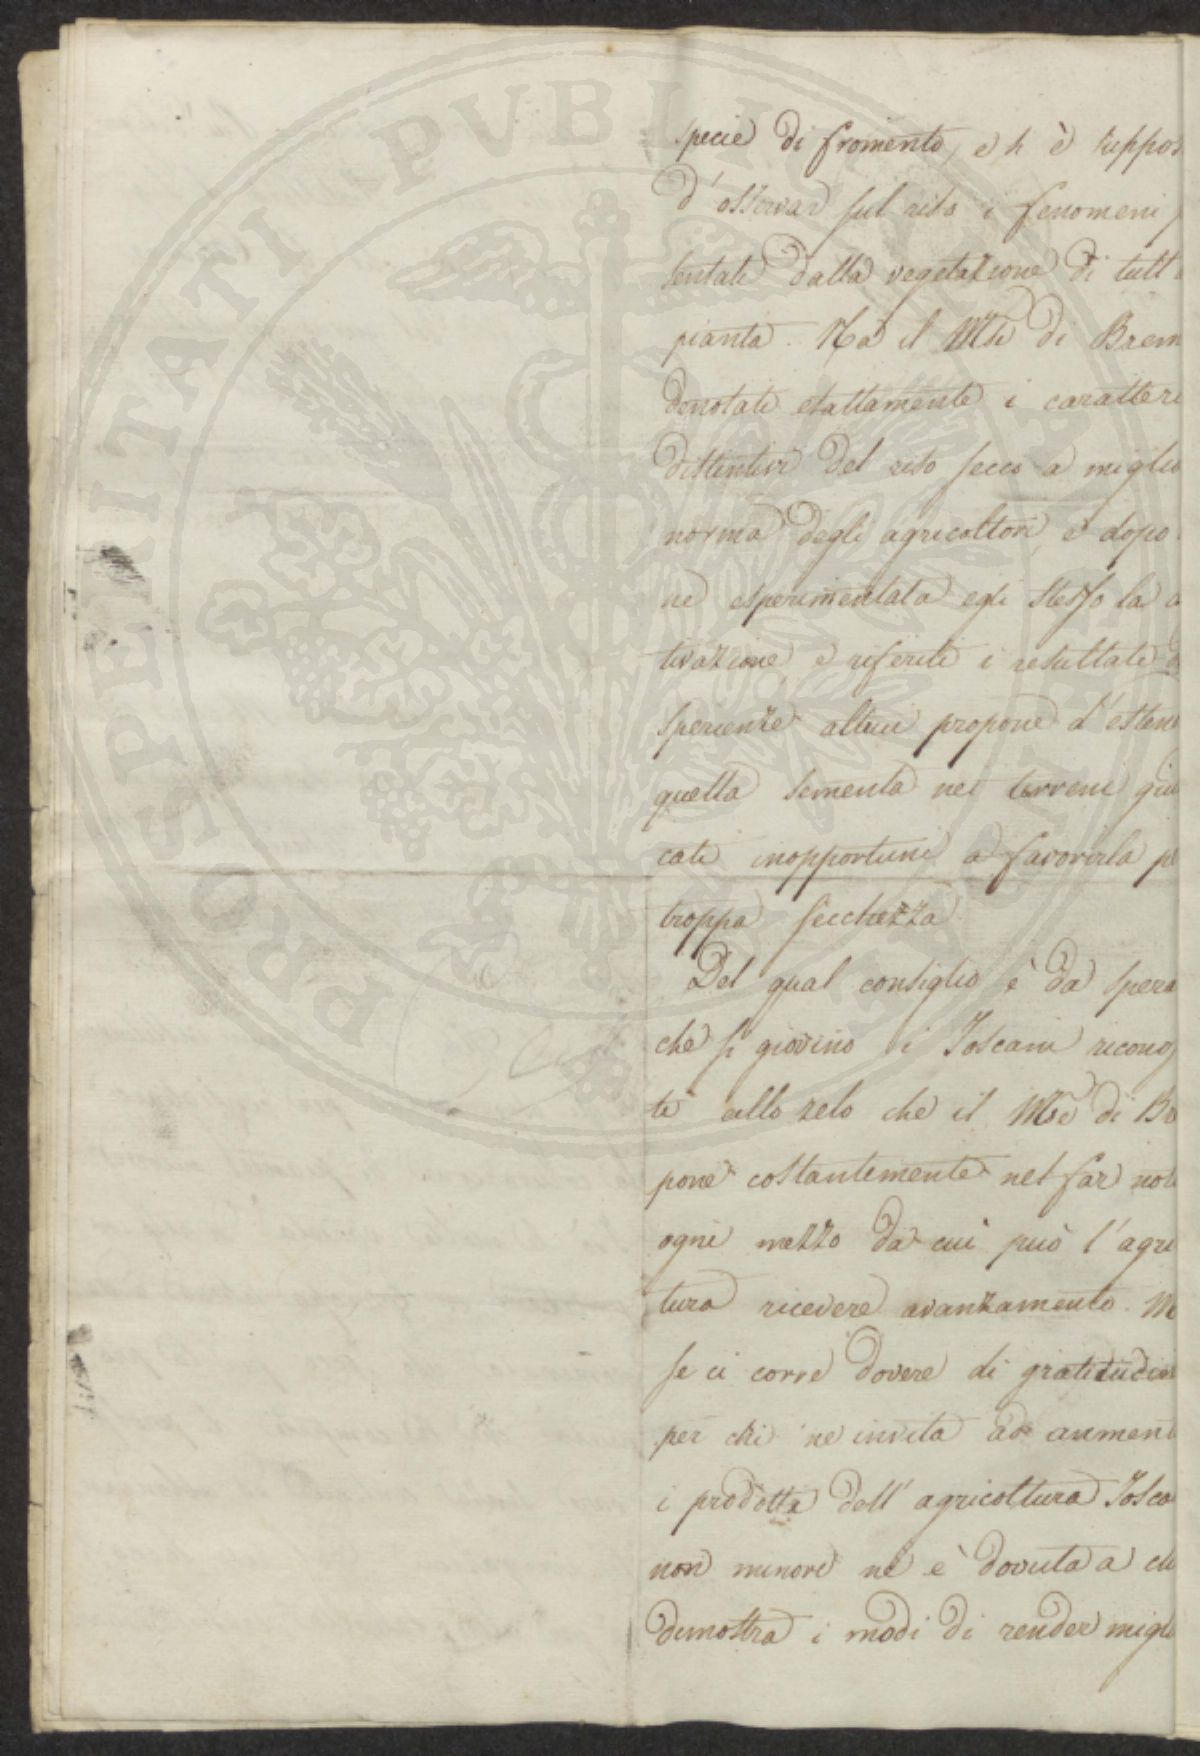 PROSPERITATI PVBLICAE
specie di fromento, e h è suppos
d'osservar sul riso i fenomeni p
sentati dalla vegetazione di tutt
pianta. Ha il Mse di Brem
denotati esattamente i caratteri
distintivi del riso secco a miglio
norma degli agricoltori, e dopo
ne esperimentata egli stesso la c
tivazione, e riferiti i resultati d
sperienze altrui propone d'esten
quella sementa nei terreni giu
cati inopportuni a favorirla pe
troppa secchezza
Del qual consiglio è da spera
che si giovino i Toscani ricono
ti allo zelo che il Mse di Br
pone costantemente nel far noti
ogni mezzo da cui può l'agri
tura ricevere avanzamento. M
se ci corre dovere di gratitudin
per chi ne invita ad aument
i prodotti dell'agricoltura Tosca
non minore ne è dovuta a chi
dimostra i modi di render migli